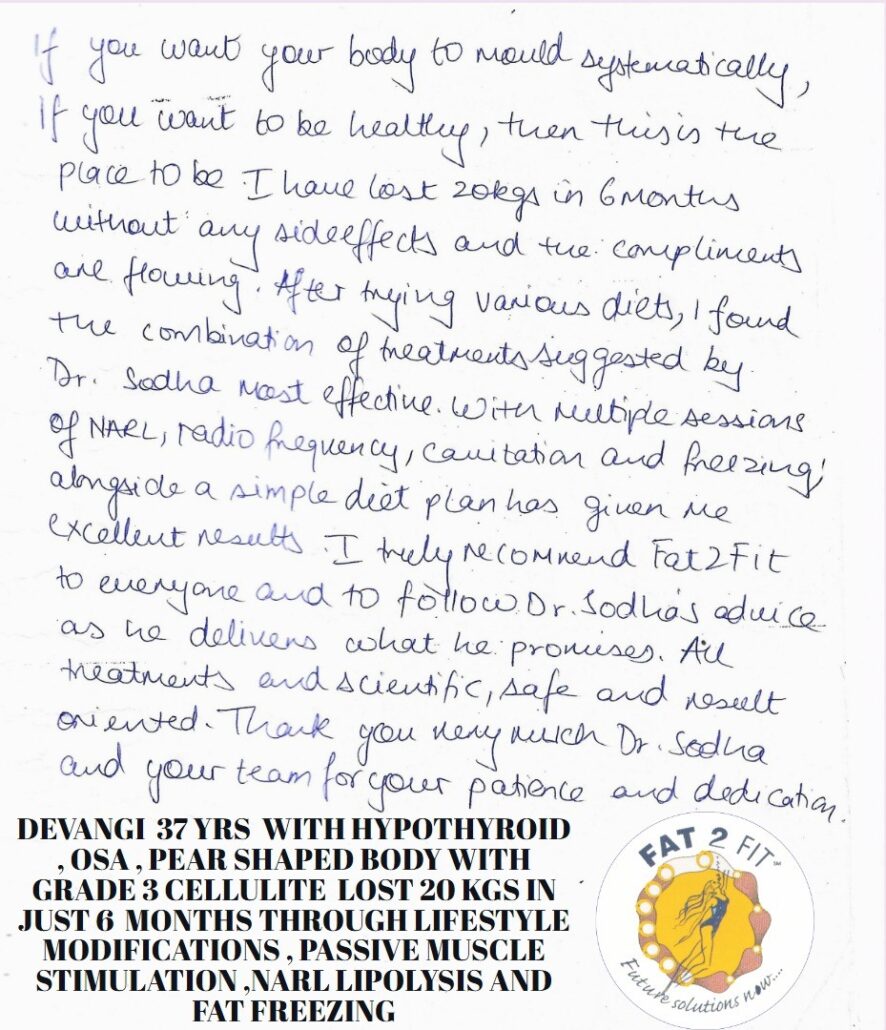 If you want your body to mould systematically,
If you want to be healthy, then this is the
place to be. I have lost 20kgs in 6 months
without any sideeffects and the compliments
are flowing. After trying various diets, I found
the combination of treatments suggested by
Dr. Sodha most effective. With multiple sessions
of NARL, radio frequency, cavitation and freezing,
alongside a simple diet plan has given me
excellent results. I truly recommend Fat2Fit
to everyone and to follow Dr. Sodha's advice
as he delivers what he promises. All
treatments and scientific, safe and result
oriented. Thank you very much Dr. Sodha
and your team for your patience and dedication.
DEVANGI 37 YRS WITH HYPOTHYROID
, OSA , PEAR SHAPED BODY WITH
GRADE 3 CELLULITE LOST 20 KGS IN
JUST 6 MONTHS THROUGH LIFESTYLE
MODIFICATIONS , PASSIVE MUSCLE
STIMULATION ,NARL LIPOLYSIS AND
FAT FREEZING
FAT 2 FIT SM
Future solutions now....